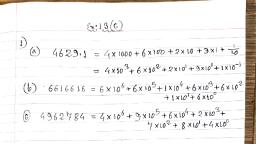 Ex-1.9(c)
1)
(a) 4629.1 = 4×1000 + 6×100 + 2×10 + 9×1 + 1/10
= 4×10³ + 6×10² + 2×10¹ + 9×10⁰ + 1×10⁻¹
(b) 6616616 = 6×10⁶ + 6×10⁵ + 1×10⁴ + 6×10³ + 6×10²
+ 1×10¹ + 6×10⁰
(c) 4962784 = 4×10⁶ + 9×10⁵ + 6×10⁴ + 2×10³ +
7×10² + 8×10¹ + 4×10⁰